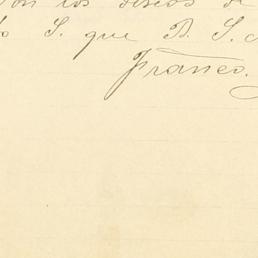 los deseos de
S. que B. S.
Franco.